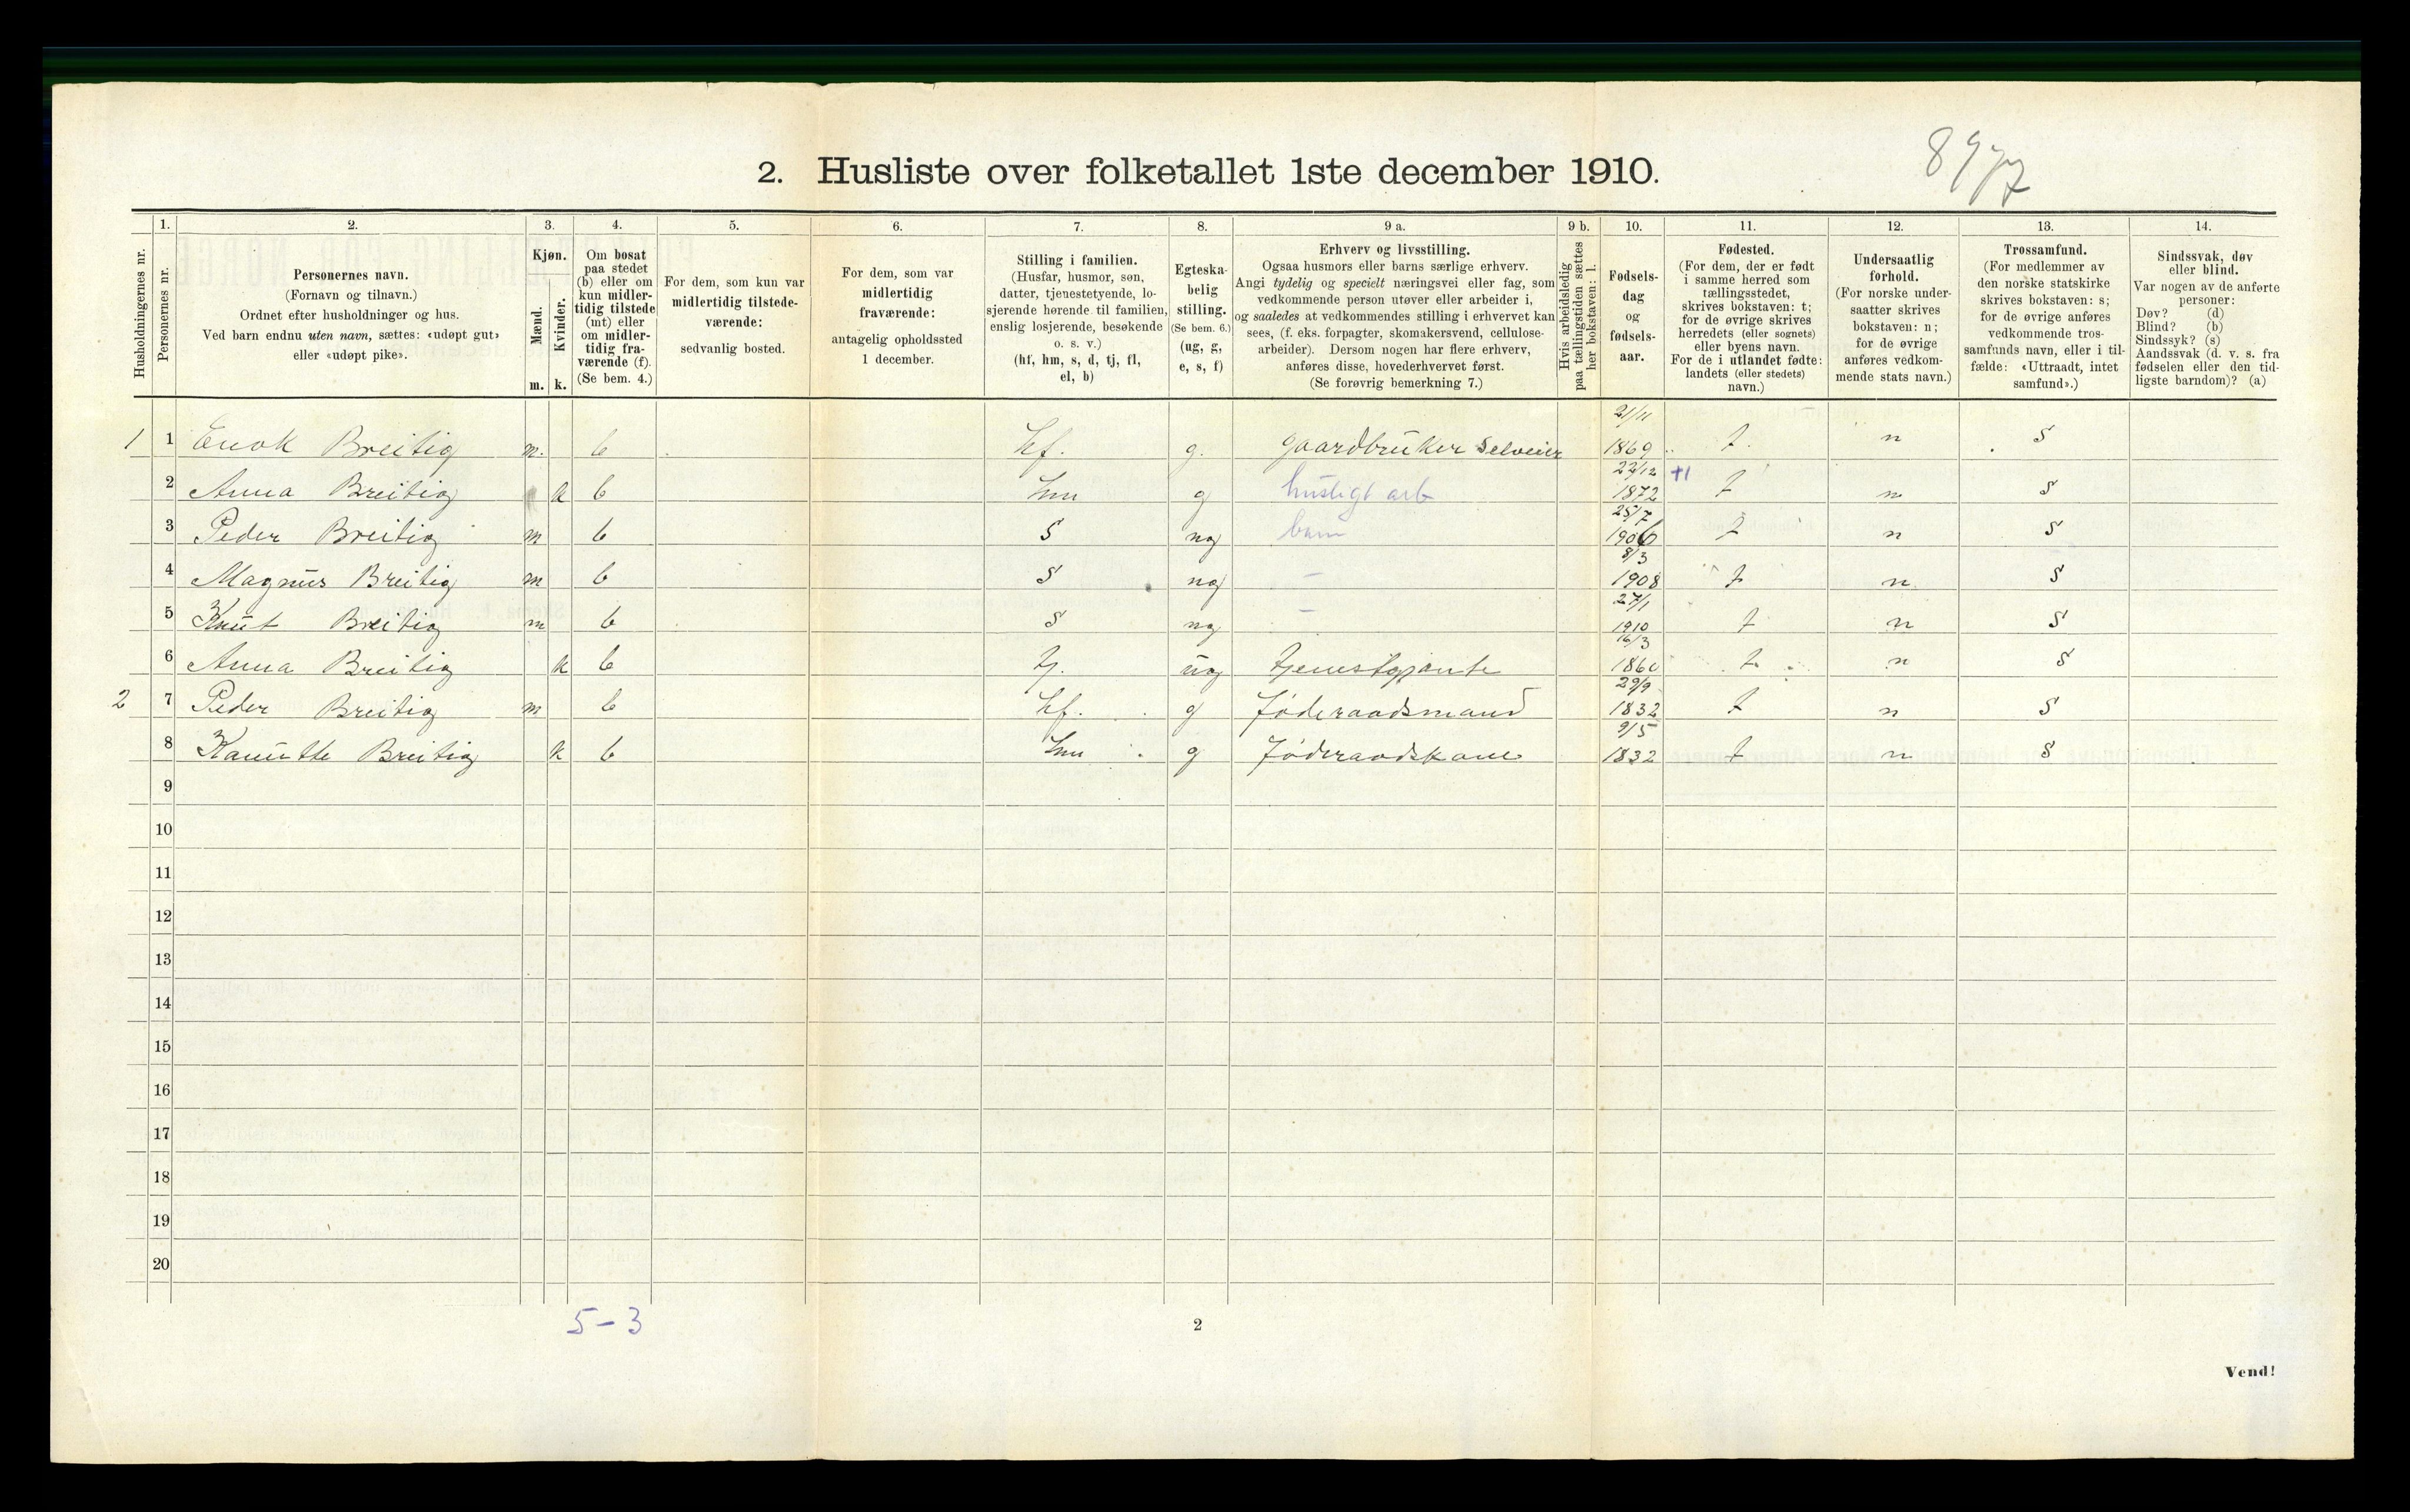 8977
2. Husliste over folketallet 1ste december 1910.
Husholdningernes nr.
1.
Personernes nr.
2.
Personernes navn.
(Fornavn og tilnavn.)
Ordnet efter husholdninger og hus.
Ved barn endnu uten navn, sættes: «udøpt gut»
eller «udøpt pike».
3.
Kjøn.
Mænd.
Kvinder.
m. k.
4.
Om bosat
paa stedet
(b) eller om
kun midler-
tidig tilstede
(mt) eller
om midler-
tidig fra-
værende (f).
(Se bem. 4.)
5.
For dem, som kun var
midlertidig tilstede-
værende:
sedvanlig bosted.
6.
For dem, som var
midlertidig
fraværende:
antagelig opholdssted
1 december.
7.
Stilling i familien.
(Husfar, husmor, søn,
datter, tjenestetyende, lo-
sjerende hørende til familien,
enslig losjerende, besøkende
o. s. v.)
(hf, hm, s, d, tj, fl,
el, b)
8.
Egteska-
belig
stilling.
(Se bem. 6.)
(ug, g,
e, s, f)
9 a.
Erhverv og livsstilling.
Ogsaa husmors eller barns særlige erhverv.
Angi tydelig og specielt næringsvei eller fag, som
vedkommende person utøver eller arbeider i,
og saaledes at vedkommendes stilling i erhvervet kan
sees, (f. eks. forpagter, skomakersvend, cellulose-
arbeider). Dersom nogen har flere erhverv,
anføres disse, hovederhvervet først.
(Se forøvrig bemerkning 7.)
9 b.
Hvis arbeidsledig
paa tællingstiden sættes
her bokstaven: l.
10.
Fødsels-
dag
og
fødsels-
aar.
11.
Fødested.
(For dem, der er født
i samme herred som
tællingsstedet,
skrives bokstaven: t;
for de øvrige skrives
herredets (eller sognets)
eller byens navn.
For de i utlandet fødte:
landets (eller stedets)
navn.)
12.
Undersaatlig
forhold.
(For norske under-
saatter skrives
bokstaven: n;
for de øvrige
anføres vedkom-
mende stats navn.)
13.
Trossamfund.
(For medlemmer av
den norske statskirke
skrives bokstaven: s;
for de øvrige anføres
vedkommende tros-
samfunds navn, eller i til-
fælde: «Uttraadt, intet
samfund».)
14.
Sindssvak, døv
eller blind.
Var nogen av de anførte
personer:
Døv? (d)
Blind? (b)
Sindssyk? (s)
Aandssvak (d. v. s. fra
fødselen eller den tid-
ligste barndom)? (a)
1 1 Enok Breitig m. b hf. g. gaardbruker Selveier 21/11 1869 t. n s
2 Anna Breitig k b hm g husligt arb 22/12 1872 t n s
3 Peder Breitig m b s ug barn 25/7 1906 t n s
4 Magnus Breitig m b s ug – 8/3 1908 t n s
5 Knut Breitig m b s ug – 27/1 1910 t n s
6 Anna Breitig k b tj. ug tjenestgjente 16/3 1860 t n s
2 7 Peder Breitig m b hf. g föderaadsmand 29/9 1832 t n s
8 Kanutte Breitig k b hm g föderaadskone 9/5 1832 t n s
9
10
11
12
13
14
15
16
17
18
19
20
5-3
2
Vend!